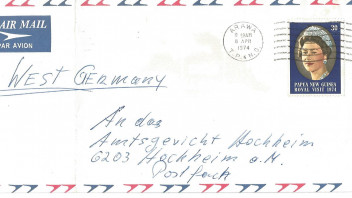 AIR MAIL
PAR AVION
ARAWA
1974
PAPUA NEW GUINEA
ROYAL VISIT 1974
West Germany
An das
Amtsgericht Hochheim
6203 Hochheim a. M.
Postfach